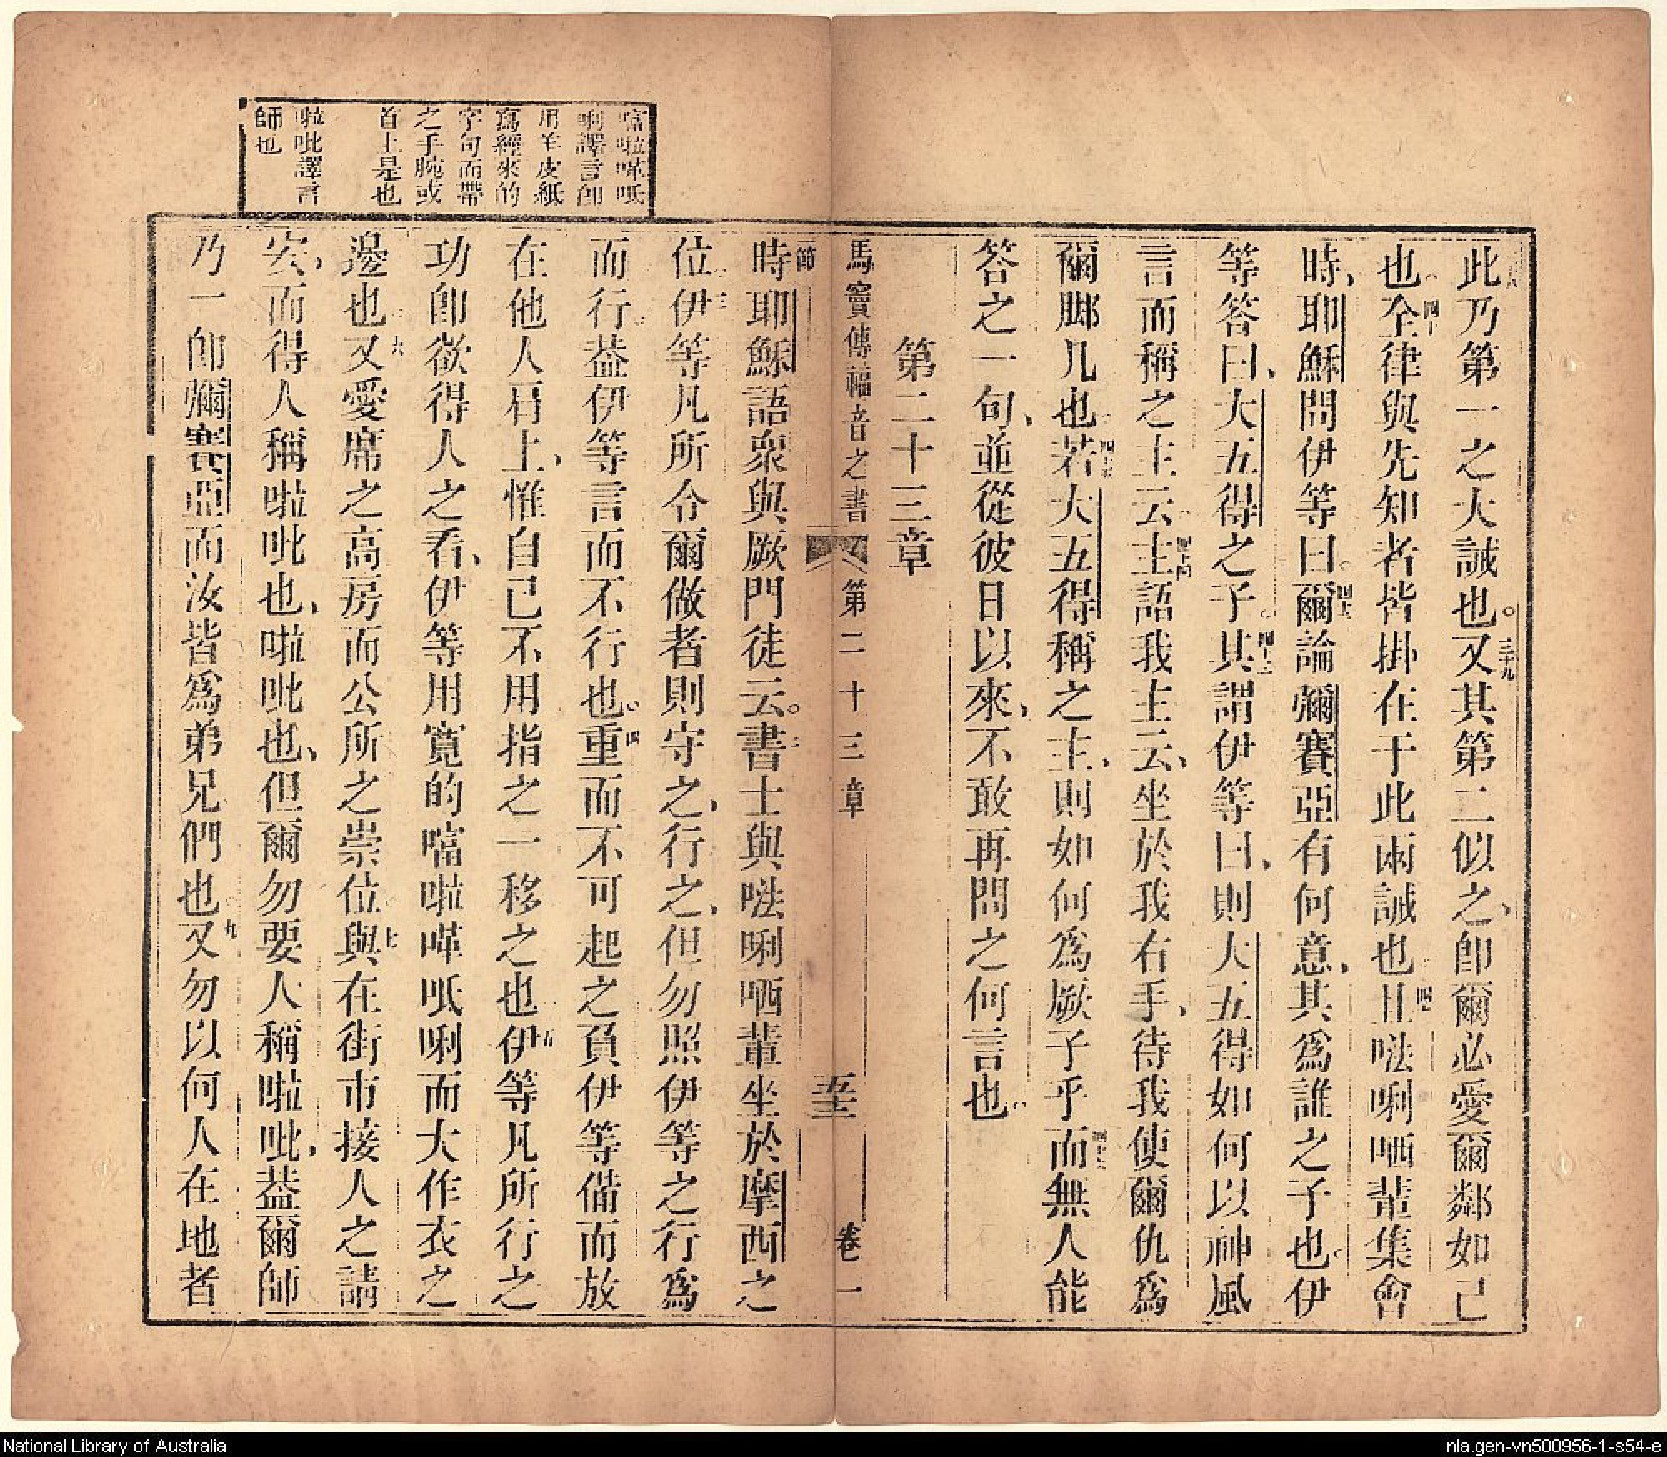 此乃第一之大誡也。又其第二似之、卽爾必愛爾鄰如己
也全律與先知者皆掛在于此兩誡也且𠵽唎哂輩集會
時、耶穌問伊等曰。爾論彌賽亞有何意、其爲誰之子也。伊
等答曰、大五得之子。其謂伊等曰、則大五得如何以神風
言而稱之主云主語我主云、坐於我右手、待我使爾仇爲
爾脚几也若大五得稱之主、則如何爲厥子乎而無人能
答之一句、並從彼日以來、不敢再問之何言也
第二十三章
馬竇傳福音之書 第二十三章 五十三 卷一
節
時耶穌語衆與厥門徒云。書士與𠵽唎哂輩坐於摩西之
位伊等凡所令爾做者則守之、行之、但勿照伊等之行爲
而行葢伊等言而不行也。重而不可起之負伊等備而放
在他人肩上、惟自己不用指之一移之也伊等凡所行之
功卽欲得人之看、伊等用寬的𠹌啦嗶呧唎而大作衣之
邊也又愛席之高房而公所之崇位與在街市接人之請
安、而得人稱啦吡也、啦吡也、但爾勿要人稱啦吡、葢爾師
乃一卽彌賽亞而汝皆爲弟兄們也又勿以何人在地者
𠹌啦嗶呧
唎譯言卽
用羊皮紙
寫經來的
字句而帶
之手腕或
首上是也
啦吡譯言
師也
National Library of Australia
nla.gen-vn500956-1-s54-e